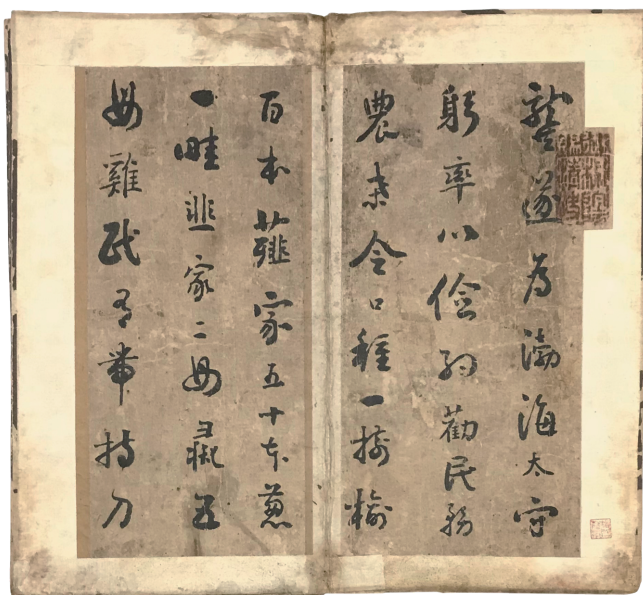 龔遂為渤海太守
躬率以儉約勸民務
農桒令口種一樹榆
百本薤家五十本葱
一畦韭家二母彘五
母雞民有帶持刀